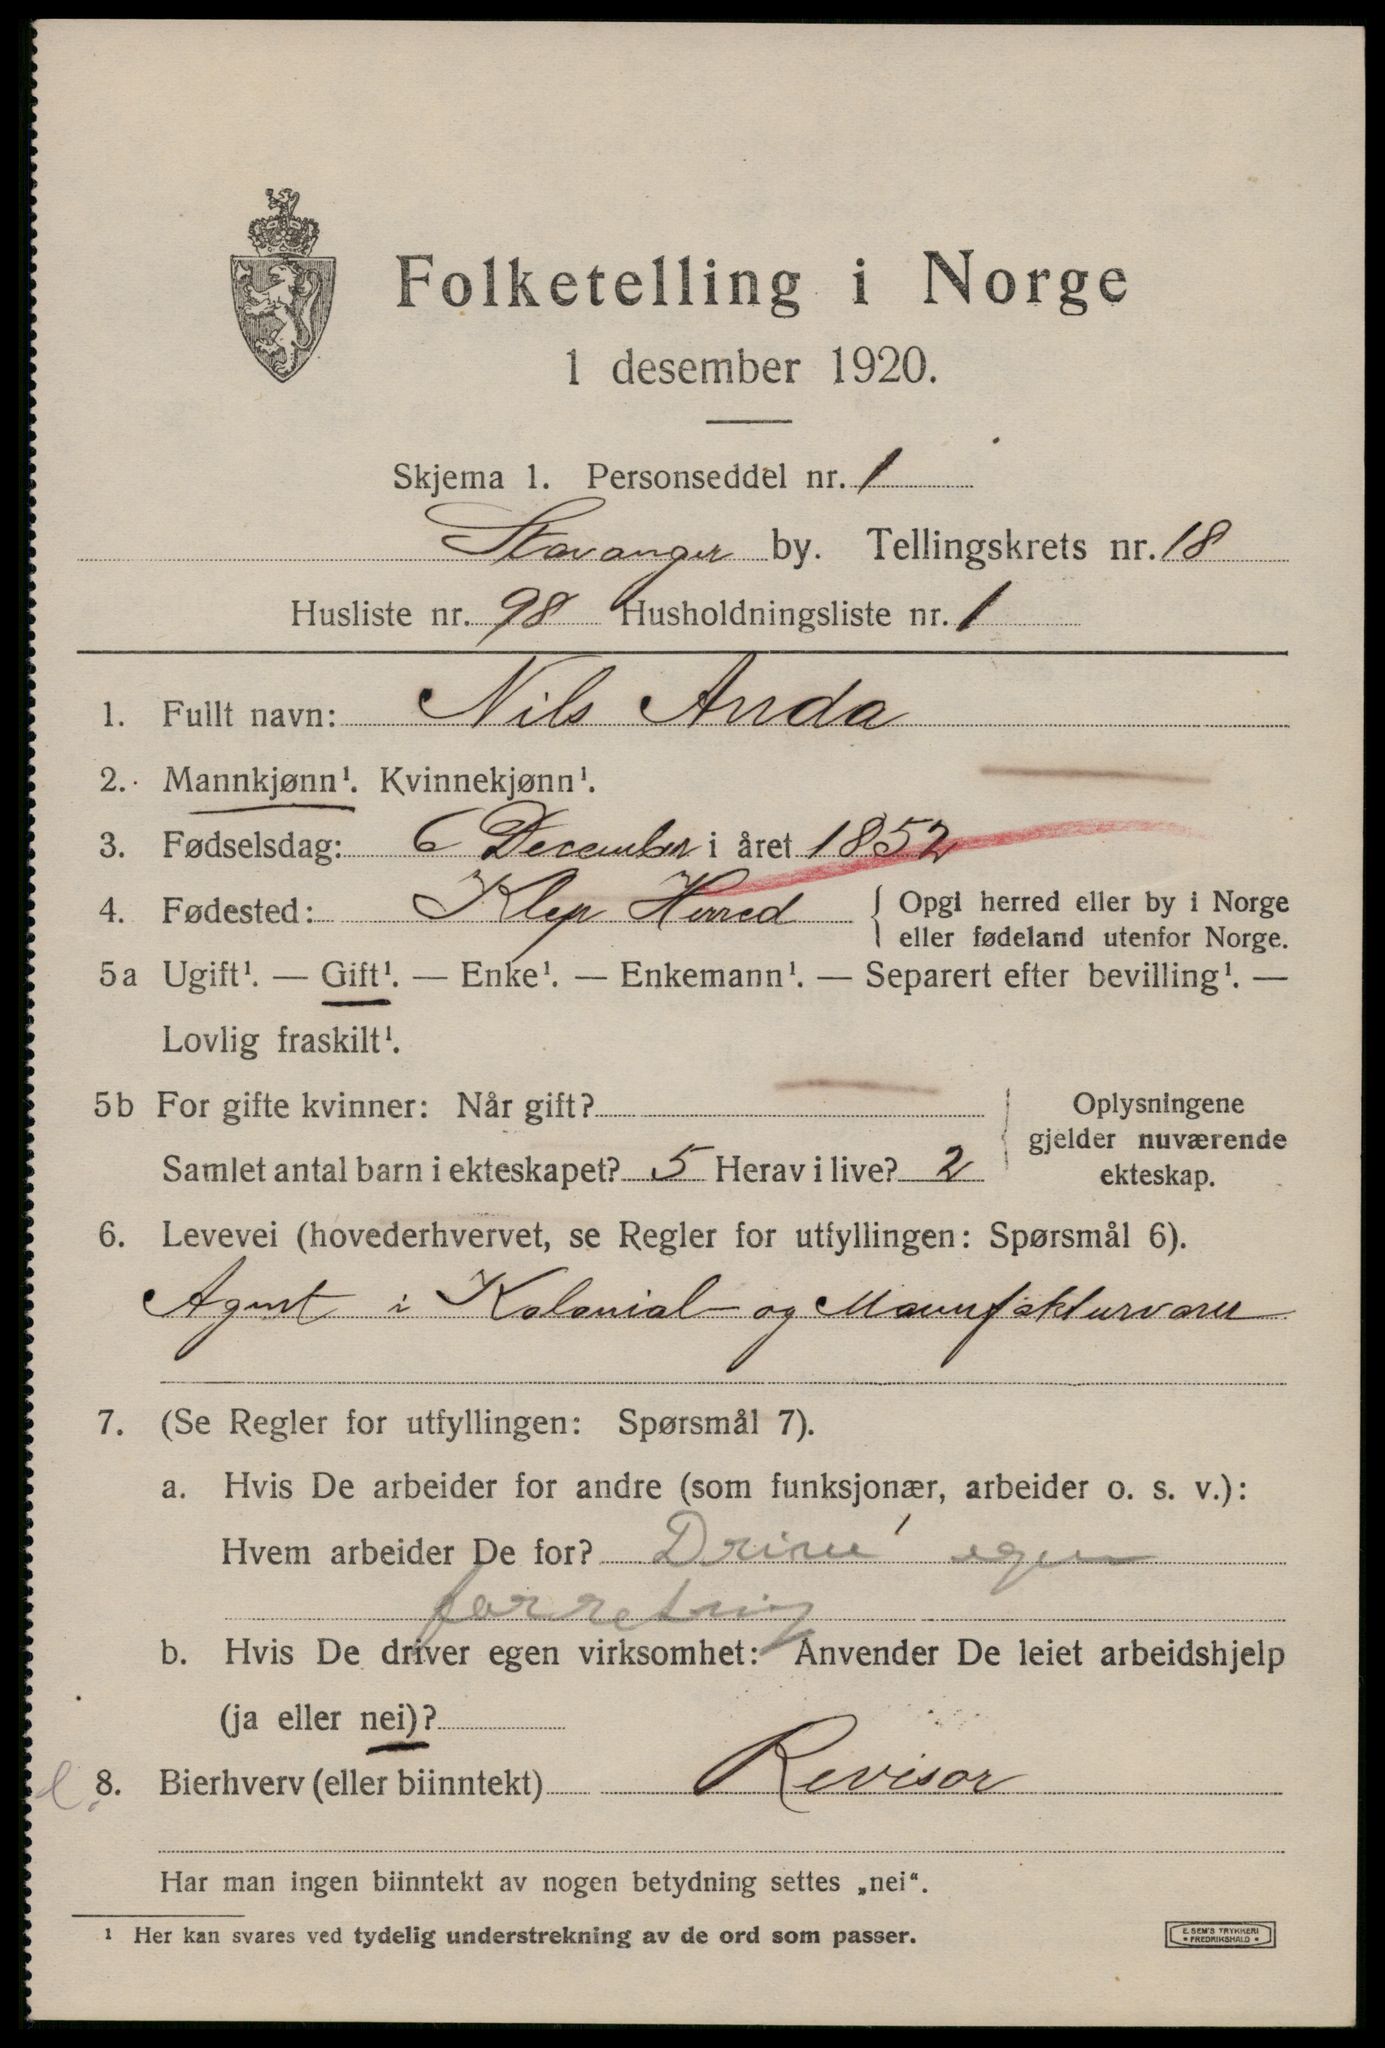 Folketelling i Norge
1 desember 1920.
Skjema 1. Personseddel nr. 1
Stavanger by. Tellingskrets nr. 18
Husliste nr. 98 Husholdningsliste nr. 1
1. Fullt navn: Nils Anda
2. Mannkjønn¹. Kvinnekjønn¹.
3. Fødselsdag: 6 December i året 1852
4. Fødested: Klep Herred { Opgi herred eller by i Norge
eller fødeland utenfor Norge.
5a Ugift¹. — Gift¹. — Enke¹. — Enkemann¹. — Separert efter bevilling¹. —
Lovlig fraskilt¹.
5b For gifte kvinner: Når gift?
Samlet antal barn i ekteskapet? 5 Herav i live? 2
Oplysningene
gjelder nuværende
ekteskap.
6. Levevei (hovederhvervet, se Regler for utfyllingen: Spørsmål 6).
Agent i Kolonial- og Manufakturvarer
7. (Se Regler for utfyllingen: Spørsmål 7).
a. Hvis De arbeider for andre (som funksjonær, arbeider o. s. v.):
Hvem arbeider De for? egen
forretning
b. Hvis De driver egen virksomhet: Anvender De leiet arbeidshjelp
(ja eller nei)?
8. Bierhverv (eller biinntekt) Revisor
Har man ingen biinntekt av nogen betydning settes „nei“.
¹ Her kan svares ved tydelig understrekning av de ord som passer.
E. SEM'S TRYKKERI
• FREDRIKSHALD •